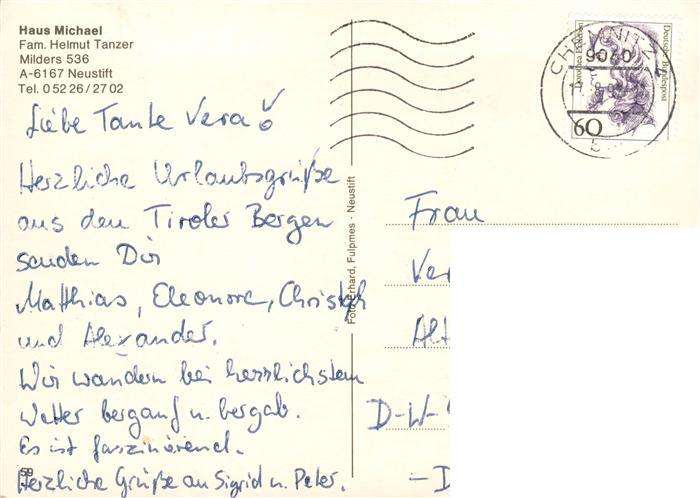 Haus Michael
Fam. Helmut Tanzer
Milders 536
A-6167 Neustift
Tel. 0 52 26 / 27 02
Liebe Tante Vera!
Herzliche Urlaubsgrüße
aus den Tiroler Bergen
senden Dir
Matthias, Eleonore, Christoph
und Alexander.
Wir wandern bei herrlichstem
Wetter bergauf u. bergab.
Es ist faszinierend.
Herzliche Grüße an Sigrid u. Peter.
59
Foto Erhard, Fulpmes · Neustift
CHEMNITZ
9040
60
Deutsche Bundespost
Frau
Ver
Alt
D-W-